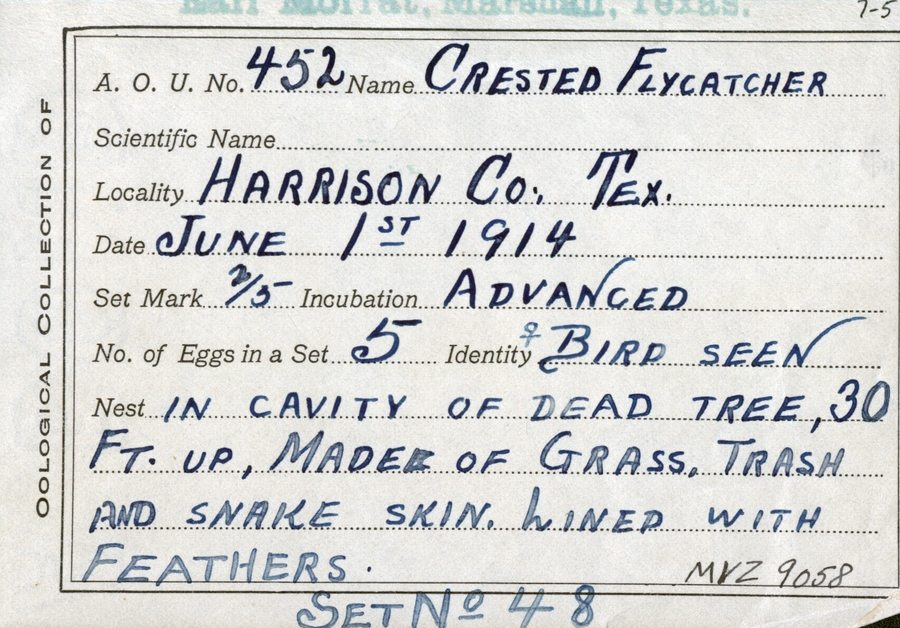 Earl Moffat, Marshall, Texas.
7-5
OOLOGICAL COLLECTION OF
A. O. U. No. 452 Name CRESTED FLYCATCHER
Scientific Name
Locality HARRISON CO. TEX.
Date JUNE 1ST 1914
Set Mark 2/5 Incubation ADVANCED
No. of Eggs in a Set 5 Identity ♀ BIRD SEEN
Nest IN CAVITY OF DEAD TREE, 30
FT. UP, MADE OF GRASS, TRASH
AND SNAKE SKIN. LINED WITH
FEATHERS.
MVZ 9058
SET No 48